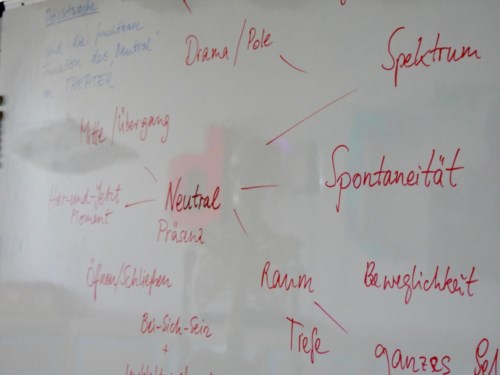 und die
des "Neutral"
THEATER
Drama/Pole
Spektrum
Mitte/Übergang
Spontaneität
Hier-und-Jetzt
Moment
Neutral
Präsenz
Öffnen/Schließen
Raum
Beweglichkeit
Bei-Sich-Sein
+
Tiefe
ganzes